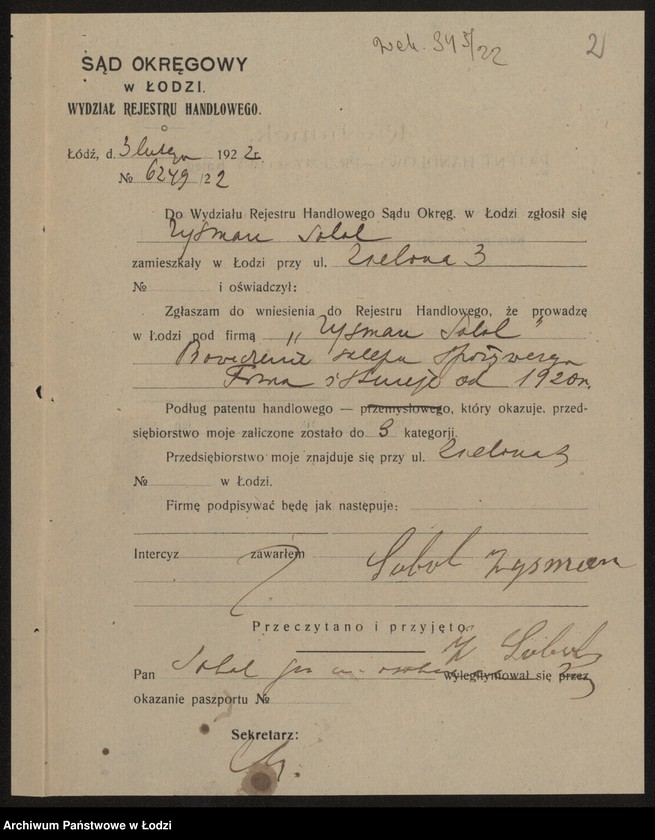 Zek. 345/22
2
SĄD OKRĘGOWY
w ŁODZI.
WYDZIAŁ REJESTRU HANDLOWEGO.
Łódź, d. 3 lutego 1922 r.
№ 6249/22
Do Wydziału Rejestru Handlowego Sądu Okręg. w Łodzi zgłosił się
Zysman Sobol
zamieszkały w Łodzi przy ul. Zielona 3
№ i oświadczył:
Zgłaszam do wniesienia do Rejestru Handlowego, że prowadzę
w Łodzi pod firmą „Zysman Sobol"
sklepu
Firma istnieje od 1920 r.
Podług patentu handlowego — przemysłowego, który okazuje, przed-
siębiorstwo moje zaliczone zostało do 3 kategorji.
Przedsiębiorstwo moje znajduje się przy ul. Zielona 3
№ w Łodzi.
Firmę podpisywać będę jak następuje:
Intercyz zawarłem
Sobol Zysman
Przeczytano i przyjęto.
Z Sobol
Pan Sobol wylegitymował się przez
okazanie paszportu №
Sekretarz:
Archiwum Państwowe w Łodzi